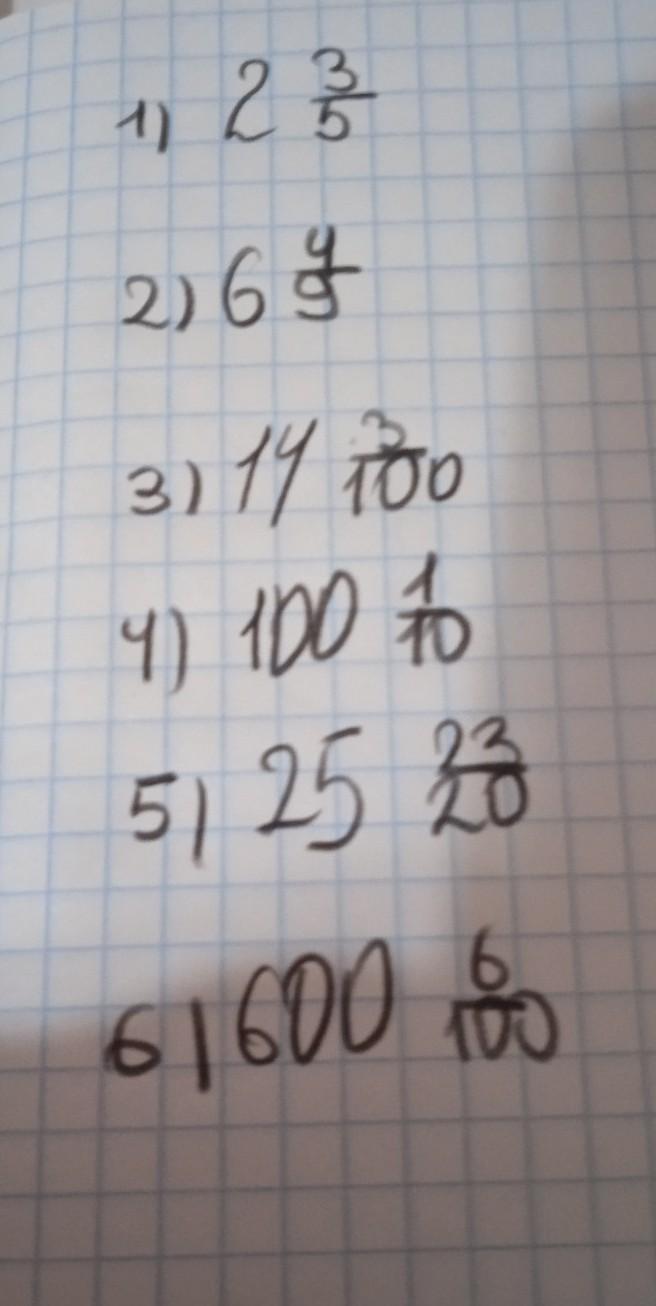 1) 2 3/5
2) 6 4/9
3) 14 3/100
4) 100 1/10
5) 25 23/20
6) 600 6/100